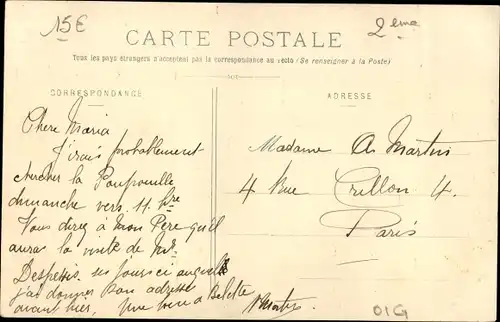 15E
2ème
CARTE POSTALE
Tous les pays étrangers n'acceptent pas la correspondance au recto (Se renseigner à la Poste)
CORRESPONDANCE
ADRESSE
Chère Maria
J'irais probablement
chercher la
dimanche vers 11 hre
Vous direz à mon Père qu'il
aura la visite de Mr
ces jours ci auquel
j'ai donner son adresse
avant hier,
Madame A. Martin
4 Rue Crillon 4.
Paris
A Martin
01G